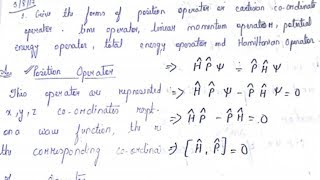 1. Give the forms of position operator or cartesian co-ordinate
operator. time operator, linear momentum operator, potential
energy operator, total energy operator and Hamiltonian Operator.
Position Operator
This operator are represented
x, y, z co-ordinates rept-
on a wave function, the r
the corresponding co-ordina
⇒ Ĥ P̂ Ψ = P̂ Ĥ Ψ
⇒ Ĥ P̂ Ψ - P̂ Ĥ Ψ = 0
Ĥ P̂ - P̂ Ĥ = 0
⇒ [Ĥ, P̂] = 0